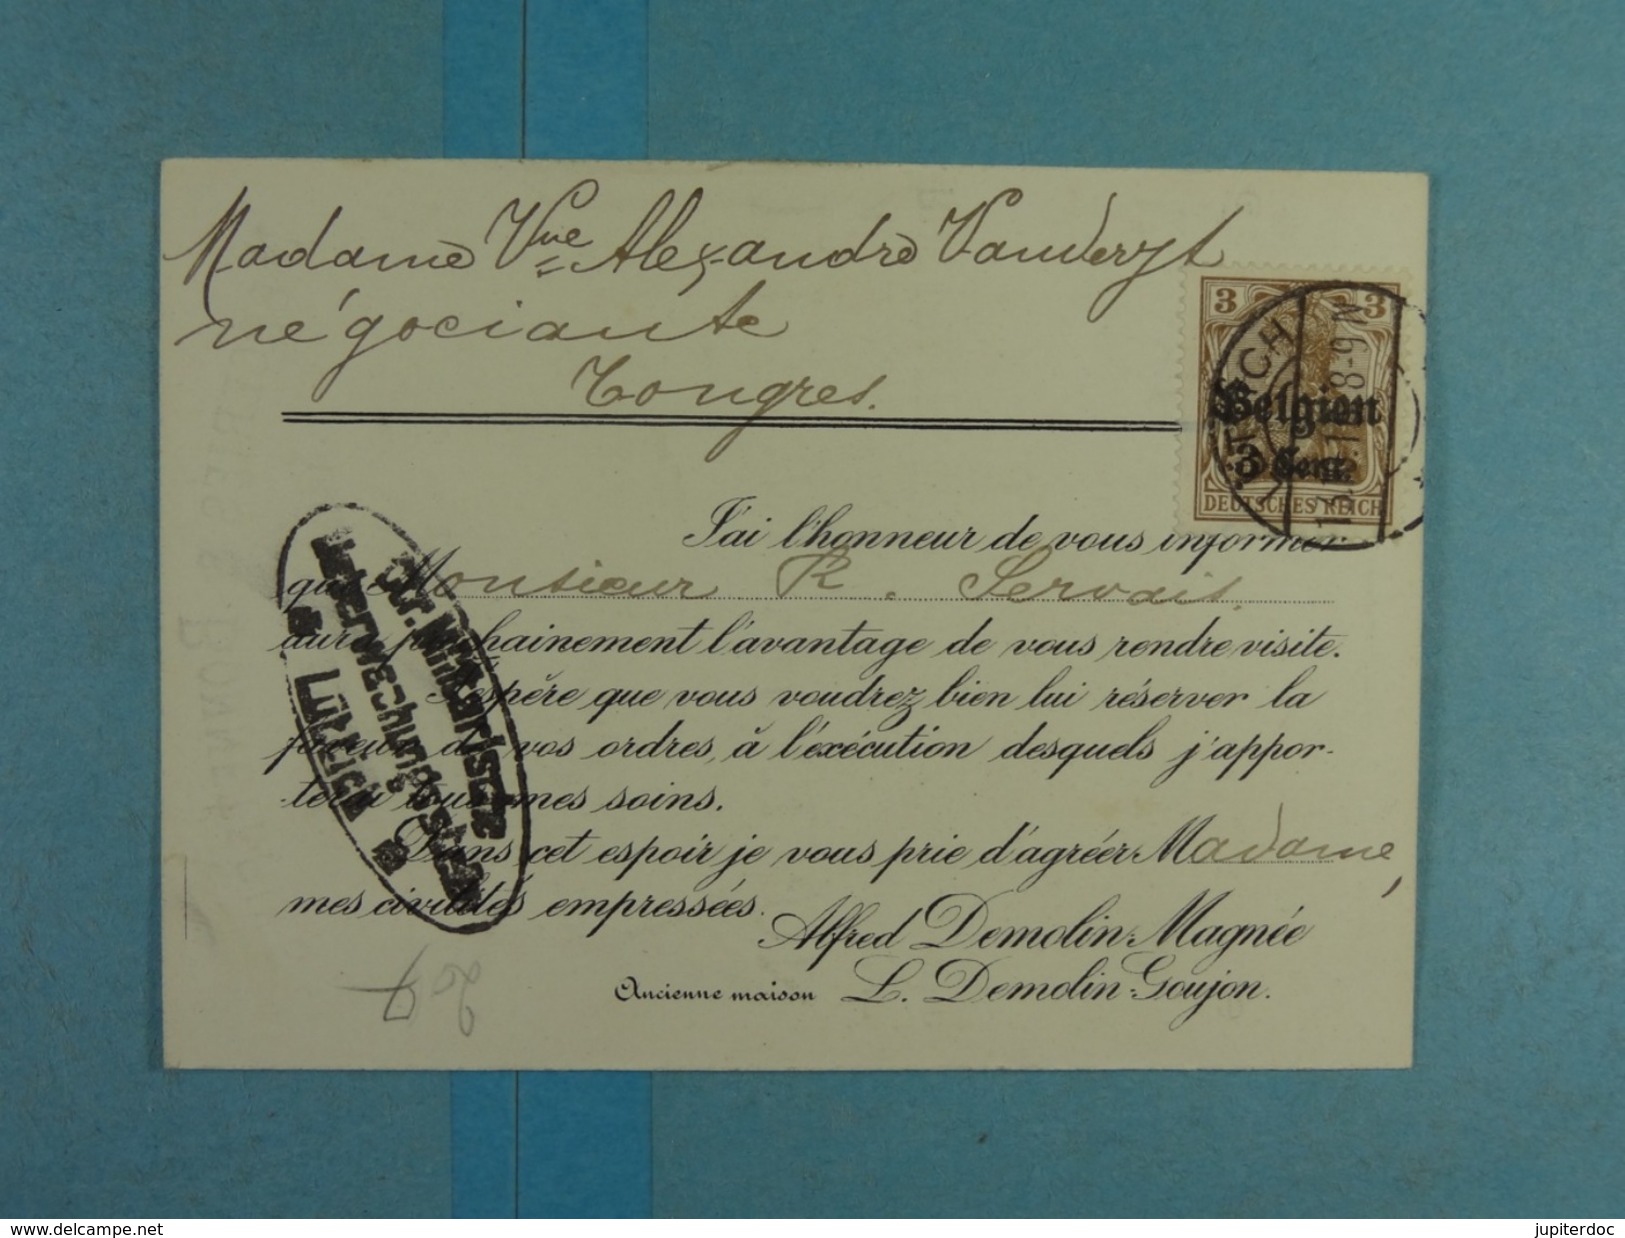 Madame Vve Alexandre Vanderyt
négociante
Tongres.
3 3
Belgien
3 Cent.
DEUTSCHES REICH
LÜTTICH
8-9 N
J'ai l'honneur de vous informer
que Monsieur R. Servais.
aura prochainement l'avantage de vous rendre visite.
J'espère que vous voudrez bien lui réserver la
faveur de vos ordres, à l'exécution desquels j'appor-
terai tous mes soins.
Dans cet espoir je vous prie d'agréer Madame,
mes civilités empressées.
Alfred Demolin-Magnée
Ancienne maison L. Demolin-Goujon.
Militärische
Ueberwachungsstelle
Lüttich
delcampe.net
jupiterdoc